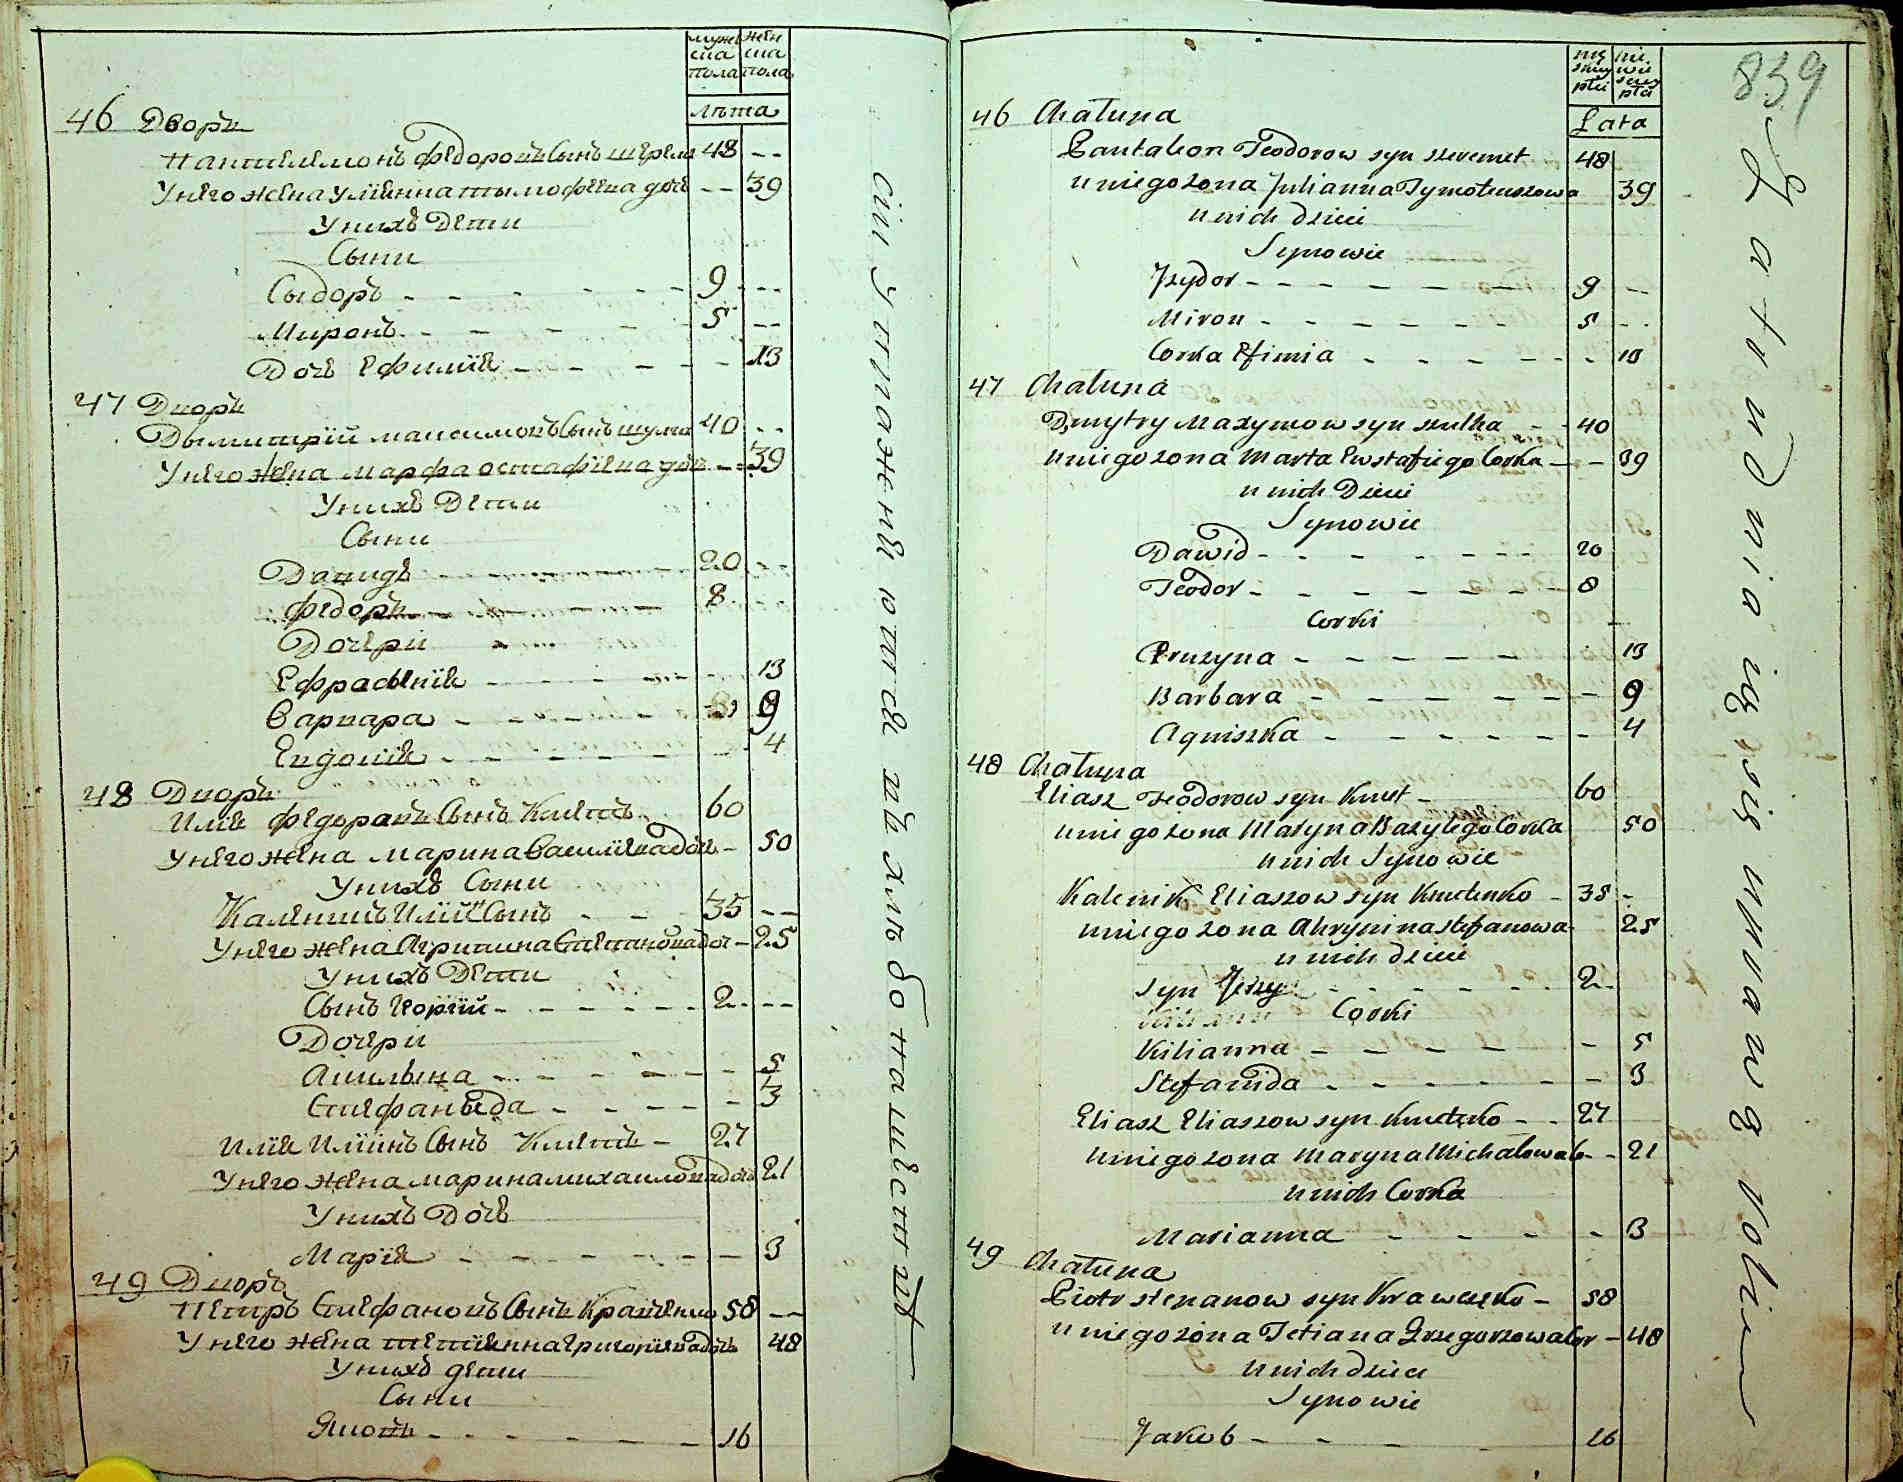 мужеска пола
женска пола
Лѣта
46 Дворъ
Пантелемонъ Федоровъ Сынъ Шереме 48 --
Унего жена Улияна Тымофѣева доч -- 39
Унихъ Дети
Сыни
Сыдоръ - - - - - - 9 --
Миронъ - - - - - 5 --
Доч Ефимія - - - - - 13
47 Дворъ
Дымитрій Максимовъ Сынъ Шулка 40 --
Унего жена Марфа Остафіева доч -- 39
Унихъ Дети
Сыни
Давидъ - - - - 20 --
Федоръ - - - - 8
Дочери
Ефрасинія - - - - 13
Варвара - - - - - 9
Евдокія - - - - - 4
48 Дворъ
Илия Федоровъ Сынъ Кметъ 60
Унего жена Марина Василиева доч - 50
Унихъ Сыни
Каленикъ Иліинъ Сынъ - - 35 --
Унего жена Агрипина Степанова доч - 25
Унихъ Дети
Сынъ Юорій - - - - - 2 --
Дочери
Акилына - - - - - - 5
Стефаныда - - - - - 3
Илия Иліинъ Сынъ Кметъ - 27
Унего жена Марина Михаилова доч 21
Унихъ Доч
Марія - - - - - - 3
49 Дворъ
Петръ Стефановъ Сынъ Кравченко 58 --
Унего жена Тетияна Григориева доч 48
Унихъ дети
Сыни
Яковъ - - - - - - 16
męskiey płci
niewieściey płci
Lata
839
46 Chałupa
Pantaleon Teodorow syn Szeremet 48
u niego żona Julianna Tymoteuszowa 39
u nich Dzieci
Synowie
Izydor - - - - - - - 9 --
Miron - - - - - - 5 --
Corka Efimia - - - - - - 13
47 Chałupa
Dmytry Maxymow syn Szulka - - 40
u niego żona Marta Ewstafiego Corka - - 39
u nich Dzieci
Synowie
Dawid - - - - - - - - 20
Teodor - - - - - - - 8
Corki
Pruzyna - - - - - - 13
Barbara - - - - - - - 9
Agniszka - - - - - - - 4
48 Chałupa
Eliasz Teodorow syn Kmet - 60
u niego żona Maryna Bazylego Corka 50
u nich Synowie
Kalenik Eliaszow syn Kmetenko - 35 -
u niego żona Ahrypina Stefanowa 25
u nich dzieci
syn Jerzy - - - - - - 2
Corki
Kilianna - - - - - - 5
Stefanida - - - - - - 3
Eliasz Eliaszow syn Kmetęko - - 27
u niego żona Maryna Michałowa C - - 21
u nich Corka
Marianna - - - - - 3
49 Chałupa
Piotr Stepanow syn Krawczęko - 58
u niego żona Tetiana Grzegorzowa Cor - 48
u nich dzieci
Synowie
Jakub - - - - 16